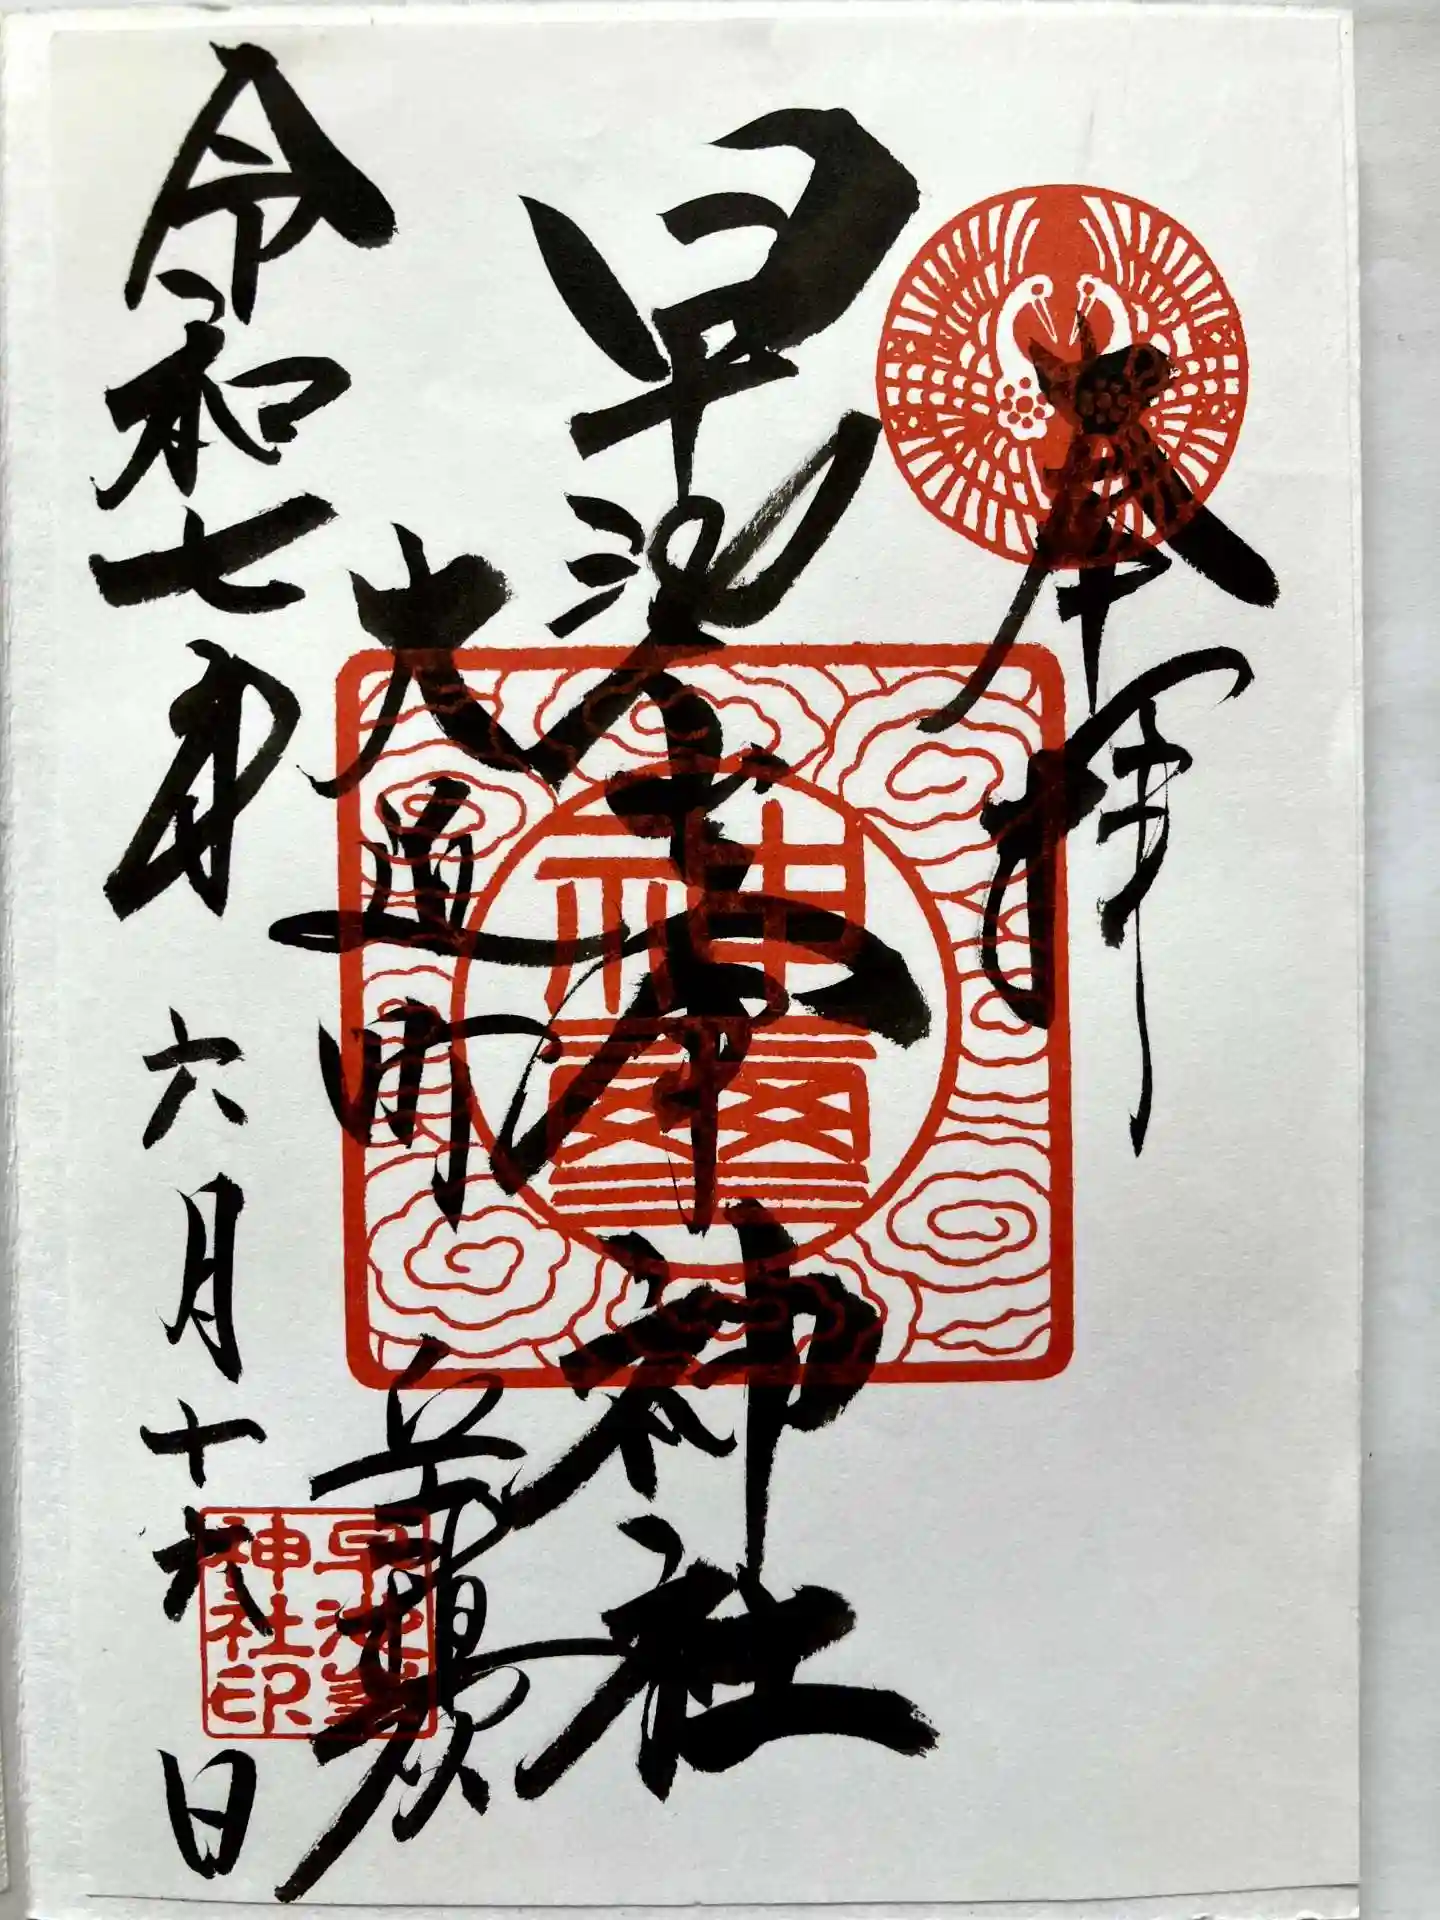 奉拝
早池峯神社
大迫町
岳
令和七年
六月十六日
早池峯
神社印